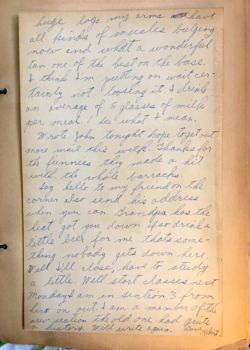 huge logs my arms have
all kinds of muscles bulging
now and what a wonderful
tan one of the best on the base.
I think I'm putting on wait cer-
tainly not loseing it I drink
an average of 5 glasses of milk
per mean! See what I mean.
Wrote John tonight hope to get out
more mail this week. Thanks for
the funnies they made a hit
with the whole barracks.
Say hello to my friend on the
corner also send his address
when you can. Grandpa has the
heat got you down if so drink a
little beer for me thats some-
thing nobody gets down here.
Well I'll close, have to study
a little. Well start classes next
Monday. I am in section 3 from
here on out. I am a member of the
new section the old one had quite
a history. Will write again.